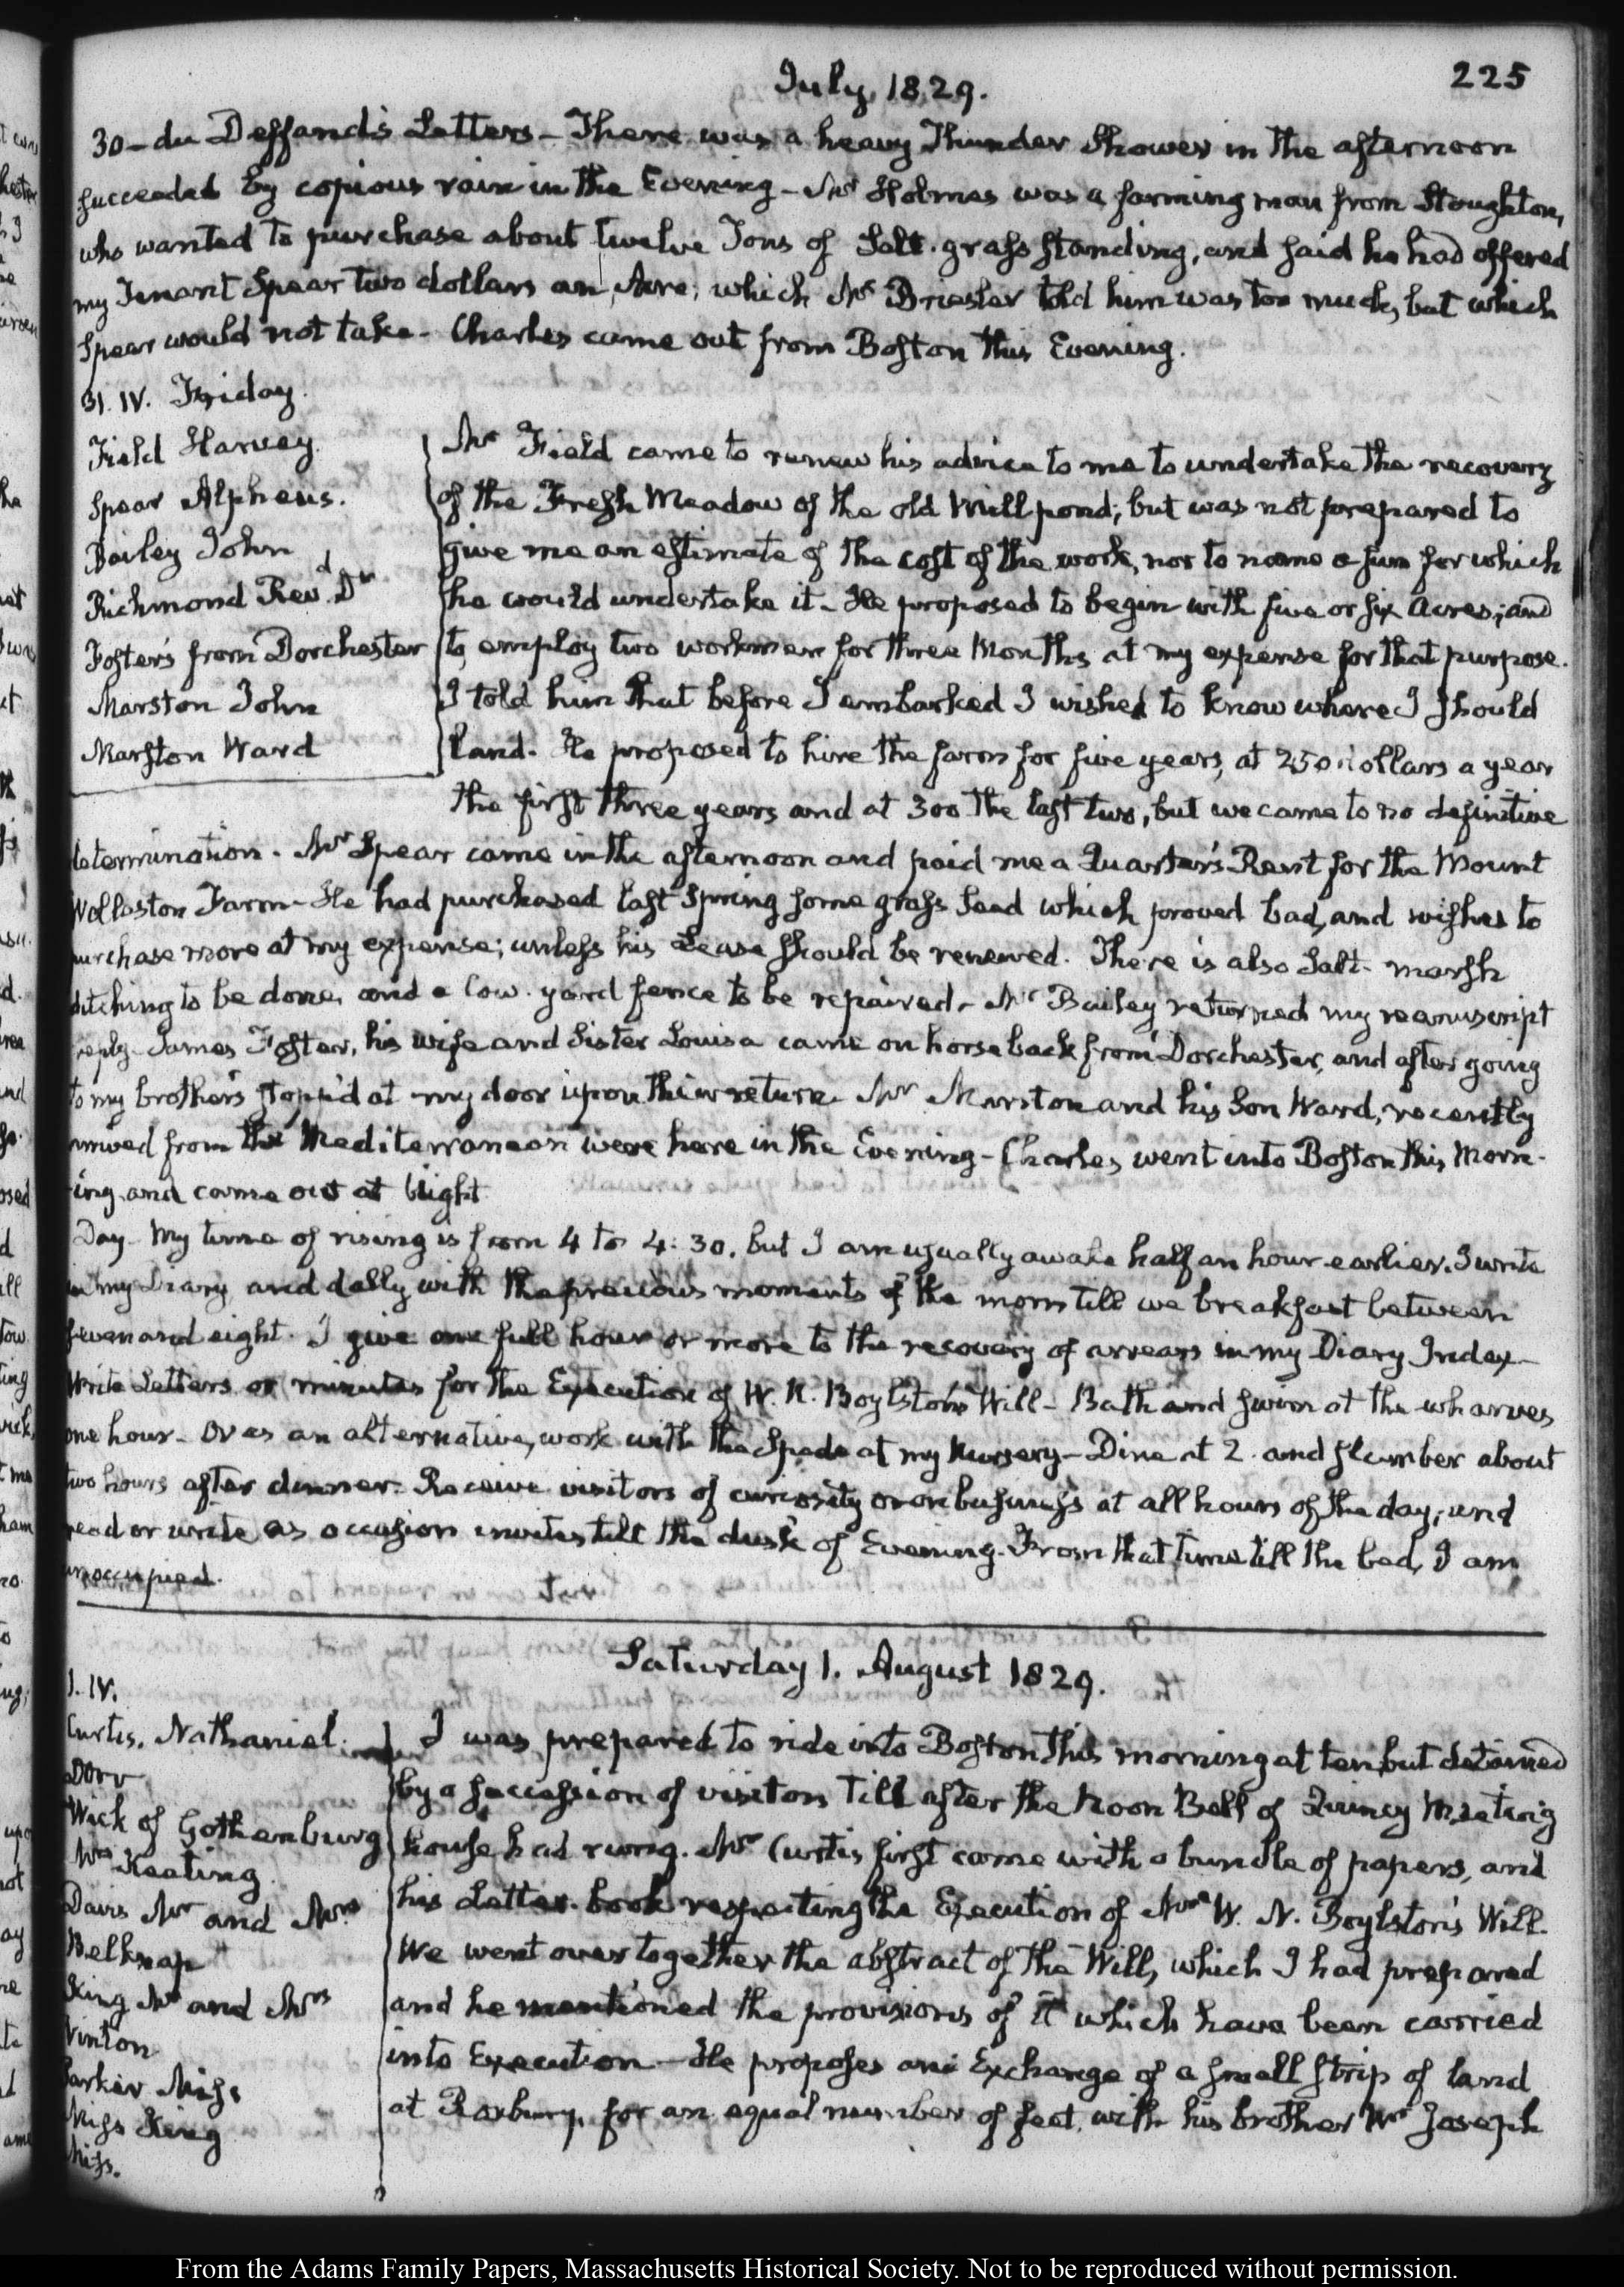 July, 1829.
225
30 – du Deffand's Letters – There was a heavy Thunder Shower in the afternoon
succeeded by copious rain in the Evening – Mr Holmes was a farming man from Stoughton,
who wanted to purchase about twelve Tons of Salt-grass standing, and said he had offered
my Tenant Spear two dollars an Acre; which Mr Briesler told him was too much, but which
Spear would not take – Charles came out from Boston this Evening.
31. IV. Friday.
Field Harvey.
Spear Alpheus.
Bailey John
Richmond Revd. Dr
Foster's from Dorchester
Marston John
Marston Ward
Mr Field came to renew his advice to me to undertake the recovery
of the Fresh Meadow of the old Mill pond; but was not prepared to
give me an estimate of the cost of the work, nor to name a sum for which
he would undertake it – He proposed to begin with five or six Acres; and
to employ two workmen for three Months at my expense for that purpose.
I told him that before I embarked I wished to know where I should
land. He proposed to hire the farm for five years, at 250 dollars a year
the first three years and at 300 the last two, but we came to no definitive
determination – Mr Spear came in the afternoon and paid me a Quarter's Rent for the Mount
Wollaston Farm – He had purchased last Spring some grass Seed which proved bad, and wishes to
purchase more at my expense; unless his Lease should be renewed. There is also Salt-marsh
ditching to be done, and a Cow-yard fence to be repaired – Mr Bailey returned my manuscript
reply – James Foster, his wife and Sister Louisa came on horseback from Dorchester, and after going
to my brother's stopp'd at my door upon their return – Mr Marston and his Son Ward, recently
arrived from the Mediterranean were here in the Evening – Charles went into Boston this Morn-
ing and came out at Night
Day – My time of rising is from 4 to 4:30, but I am usually awake half an hour earlier. I write
in my Diary and dally with the precious moments of the morn till we breakfast between
seven and eight. I give one full hour or more to the recovery of arrears in my Diary Index –
Write Letters or minutes for the Execution of W. N. Boylston's Will – Bath and swim at the wharves
one hour – Or as an alternative, work with the Spade at my Nursery – Dine at 2 and slumber about
two hours after dinner. Receive visitors of curiosity or on business at all hours of the day; and
read or write as occasion invites till the dusk of Evening. From that time till the bed, I am
unoccupied.
Saturday 1. August 1829.
1. IV.
Curtis. Nathaniel.
Dorr
Wick of Gothenburg
Mrs Keating
Davis Mr and Mrs
Belknap
King Mr and Mrs
Vinton
Parker Miss
Miss King
Miss.
I was prepared to ride into Boston this morning at ten, but detained
by a succession of visitors till after the Noon Bell of Quincy Meeting
house had rung. Mr Curtis first came with a bundle of papers, and
his Letter-book respecting the Execution of Mr W. N. Boylston's Will.
We went over together the abstract of the Will, which I had prepared
and he mentioned the provisions of it which have been carried
into Execution – He proposes an Exchange of a small strip of land
at Roxbury, for an equal number of feet, with his brother Mr Joseph
From the Adams Family Papers, Massachusetts Historical Society. Not to be reproduced without permission.